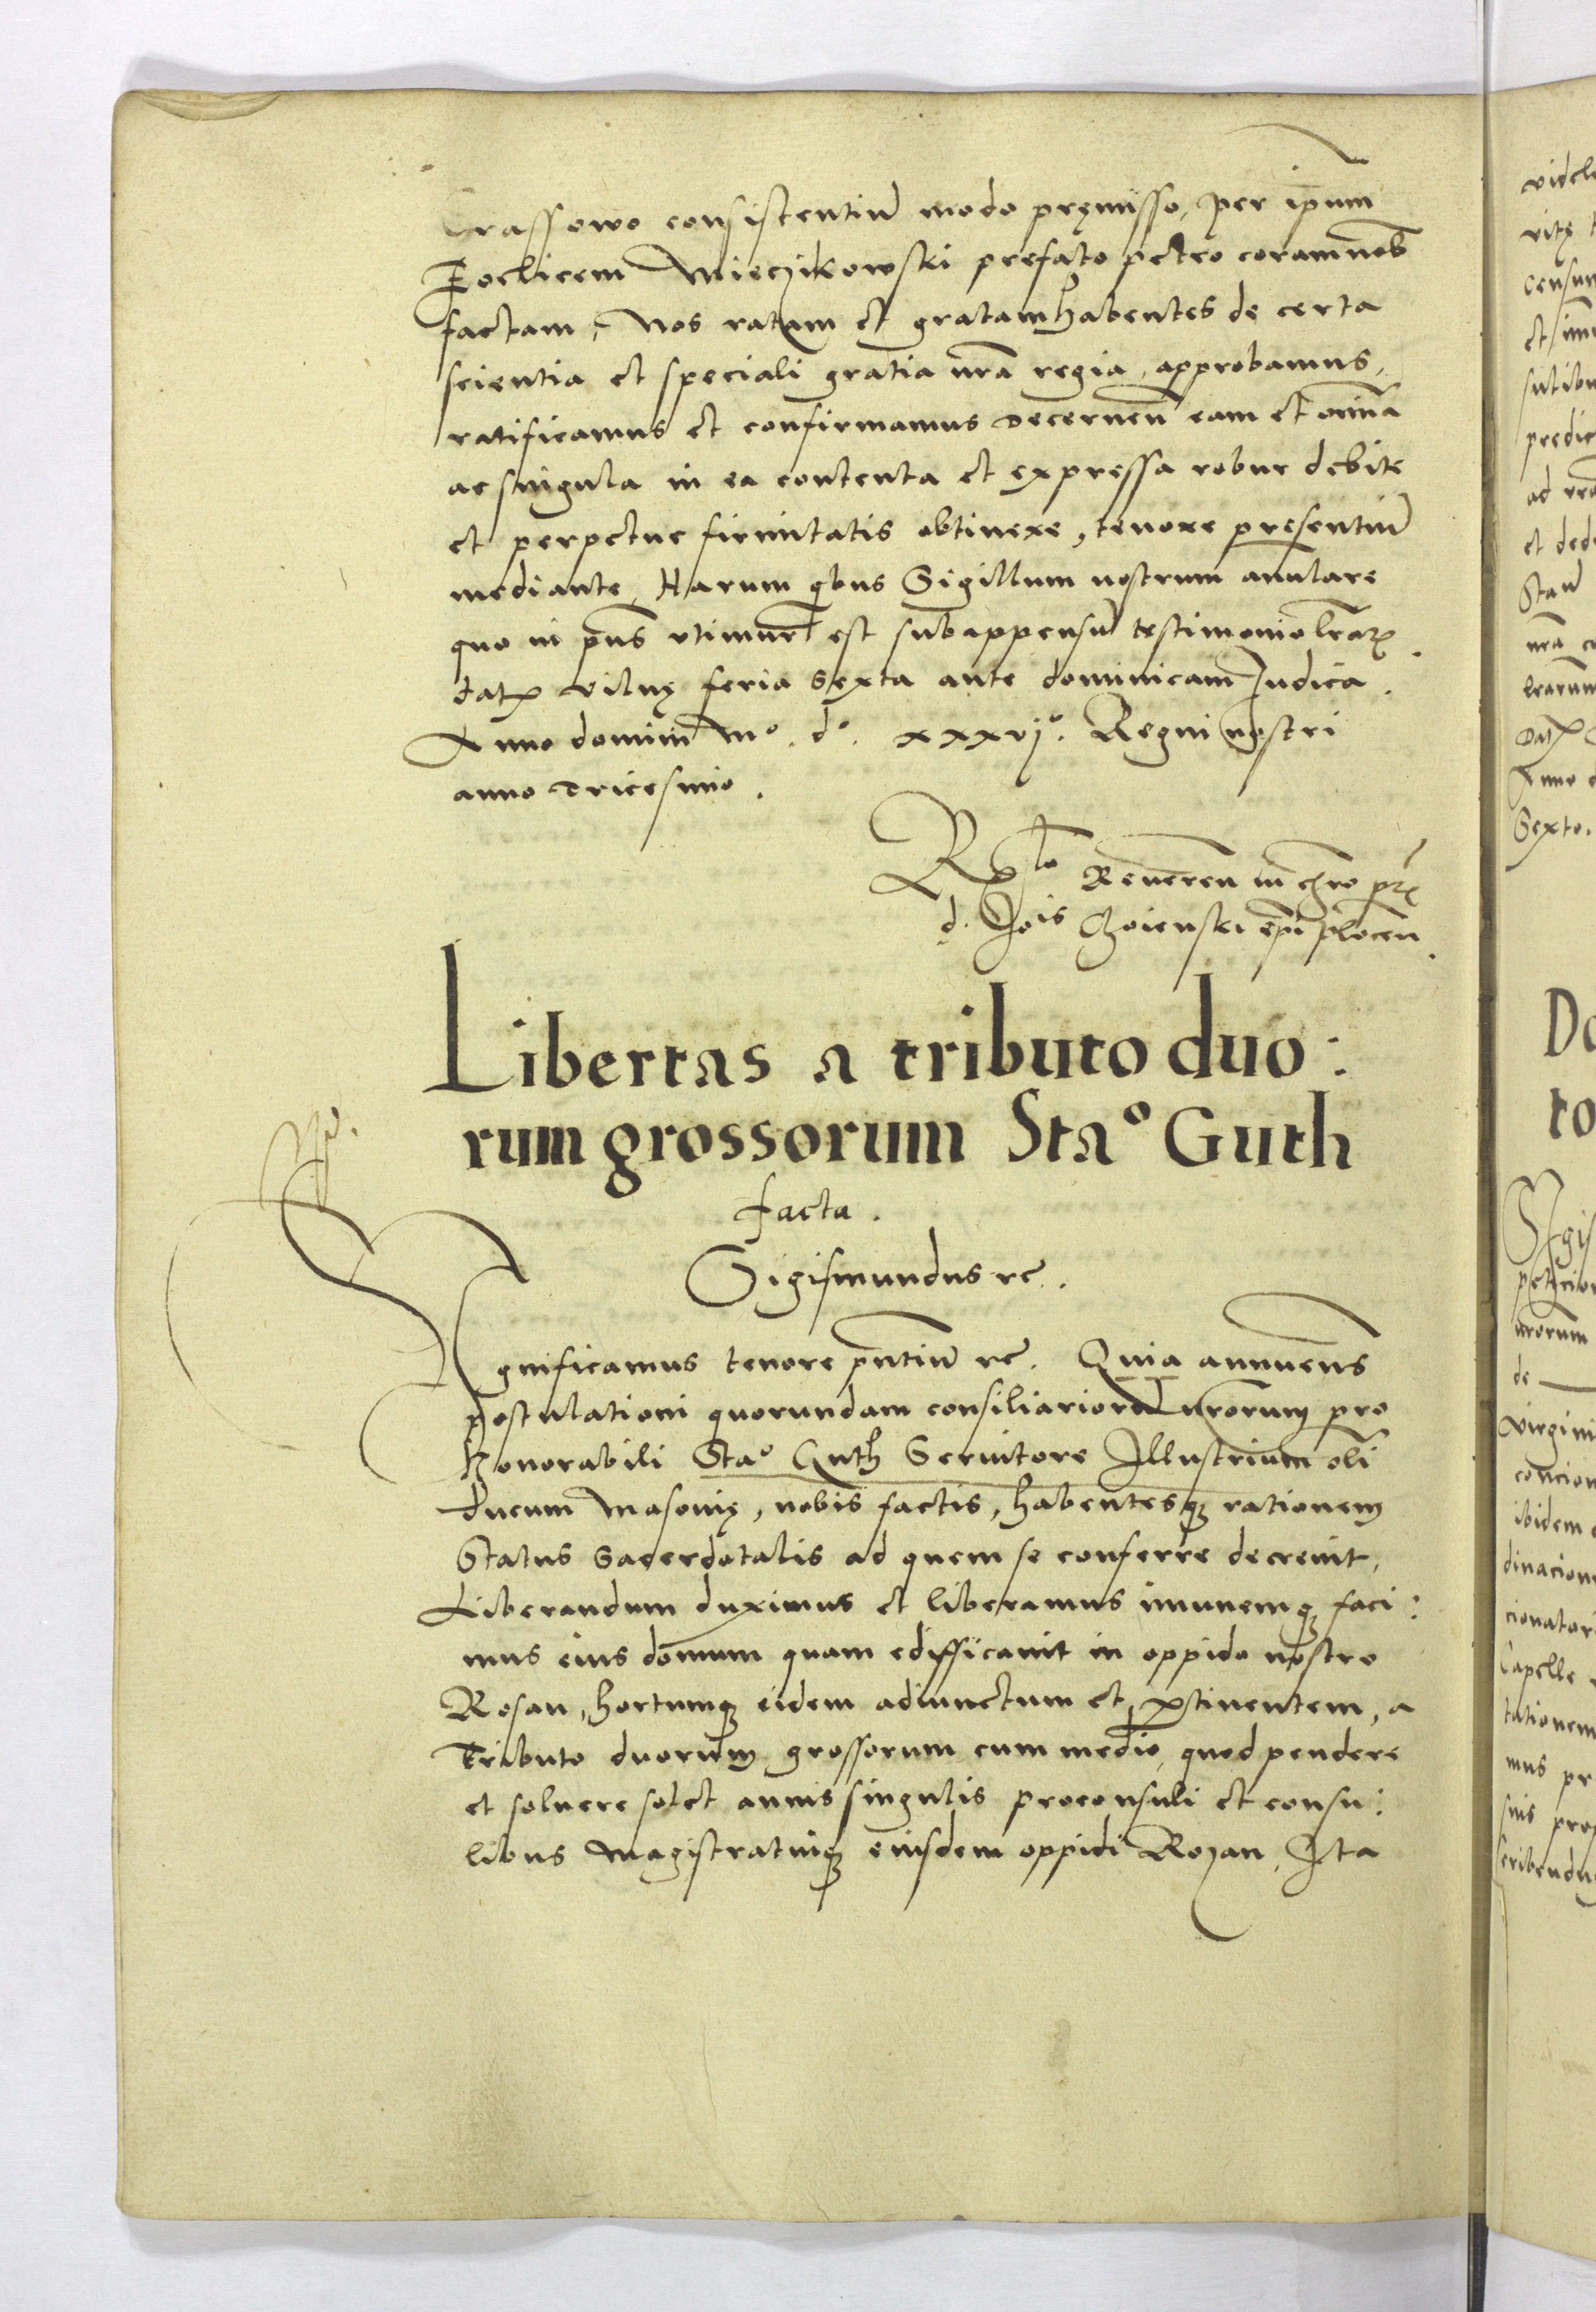 Crassowo consistentiū modo pręmisso, per ipum̄
Foelicem Mieczikowski prefato petro coram nob̄
factam, Nos ratam et gratam habentes de certa
scientia et speciali gratia nr̄a regia, approbamus,
ratificamus et confirmamus decernen̄ eam et om̄ia
ac singula in ea contenta et expressa robur debite
et perpetue firmitatis obtinere, tenore presentiū
mediante, Harum qbus Sigillum nostrum anulare
quo in pn̄s vtimur est subappensū testimonio lr̄aꝝ
datꝝ Vilnę feria Sexta ante dominicam Iudica.
Anno domini Mº. dº. xxxvjº. Regni nostri
anno Tricesimo.
R̄elo Reueren in chr̄o pr̄is
d. Jois Choienski ep̄i plocen̄.
Libertas a tributo duo:
rum grossorum Staº Guth
facta.
Sigismundus rc̄.
Significamus tenore pn̄tiū rc̄. Quia annuen̄s
postulationi quorundam consiliariorū nr̄orum pro
Honorabili Staº Guth Seruitore Illustrium oli
ducum Masouię, nobis factis, habentesqꝫ rationem
Status Sacerdotalis ad quem se conferre decreuit,
Liberandum duximus et liberamus imunemqꝫ faci:
mus eius domum quam edifficauit in oppido nostro
Rosan, hortumqꝫ eidem adiunctum et ꝑtinentem, a
Tributo duorum grossorum cum medio, quod pendere
et soluere solet annis singulis proconsuli et consu:
libus Magistratuiqꝫ eiusdem oppidi Rozan, Ita
censum
predic
Anno
Sexto.
Do
to
de
ibidem
Capelle
tationem
mus